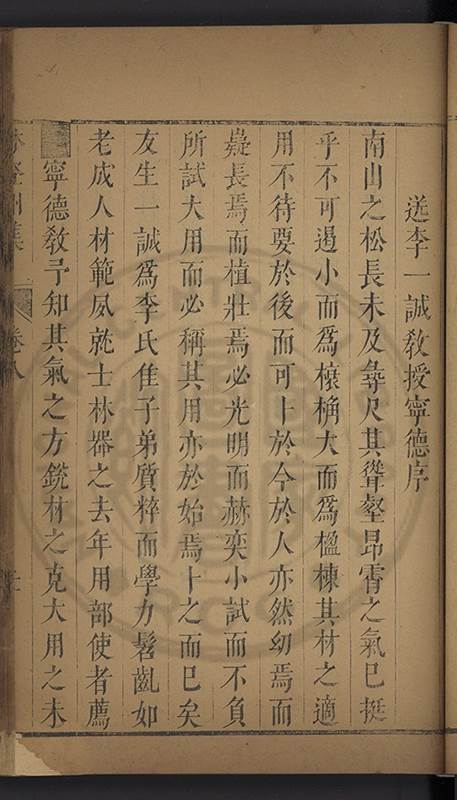 送李一誠教授寧德序
南山之松長未及尋尺其聳壑昂霄之氣已挺
乎不可遏小而為欀桷大而為楹棟其材之適
用不待要於後而可卜於今於人亦然幼焉而
嶷長焉而植壯焉必光明而赫奕小試而不負
所試大用而必稱其用亦於始焉卜之而已矣
友生一誠為李氏佳子弟質粹而學力髫齓如
老成人材範夙就士林器之去年用部使者薦
寧德敎予知其氣之方銳材之克大用之未
集
卷八